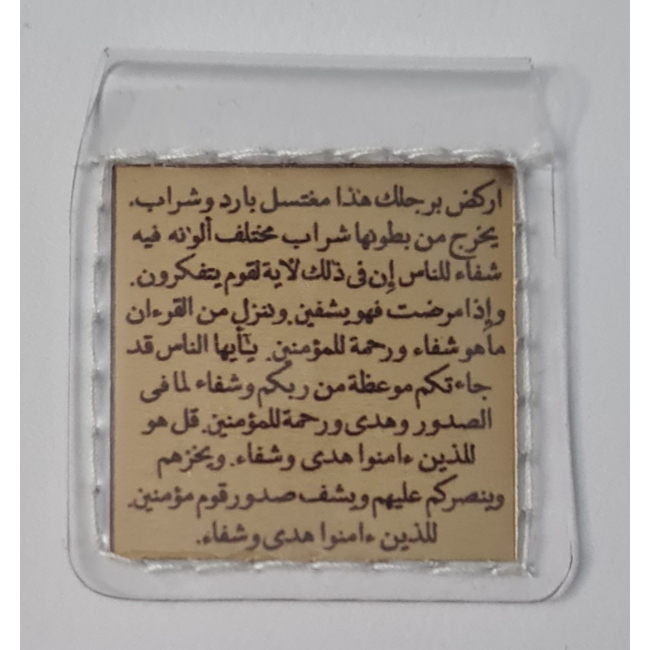 اركض برجلك هذا مغتسل بارد وشراب.
يخرج من بطونها شراب مختلف ألوانه فيه
شفاء للناس إن فى ذلك لآية لقوم يتفكرون.
وإذا مرضت فهو يشفين. وننزل من القرءان
ما هو شفاء ورحمة للمؤمنين. يأيها الناس قد
جاءتكم موعظة من ربكم وشفاء لما فى
الصدور وهدى ورحمة للمؤمنين. قل هو
للذين ءامنوا هدى وشفاء. ويخزهم
وينصركم عليهم ويشف صدور قوم مؤمنين.
للذين ءامنوا هدى وشفاء.